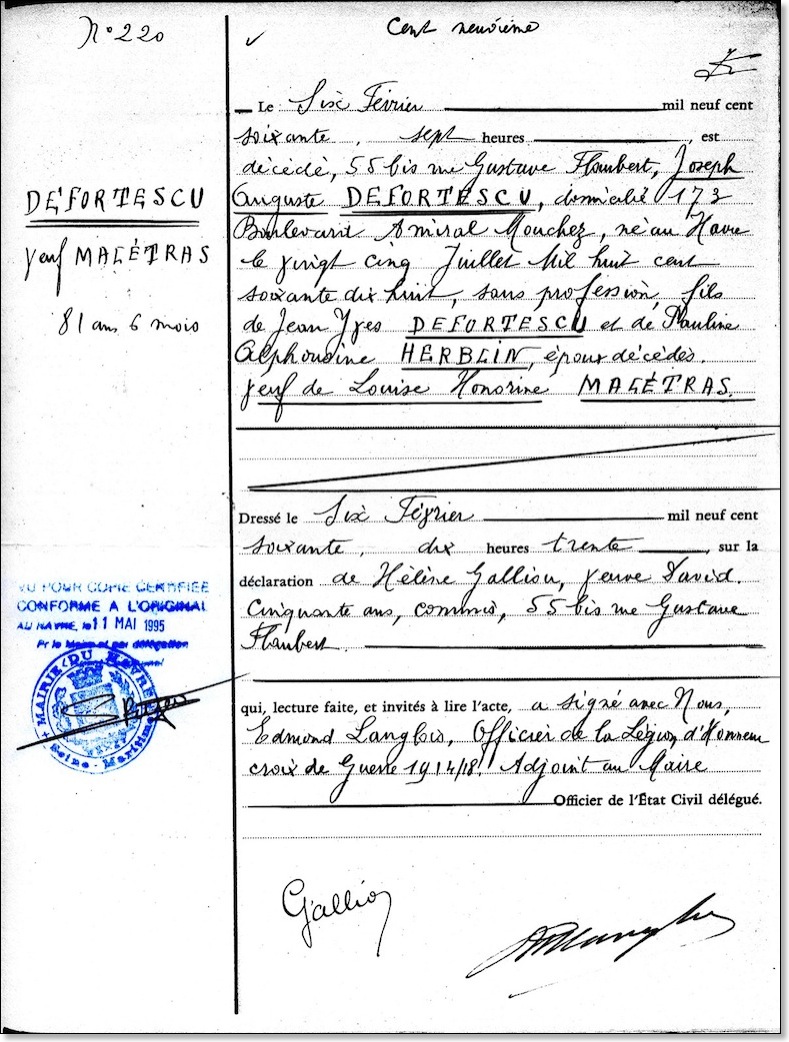 N° 220
Cent neuvième
Le Six Février mil neuf cent
soixante, sept heures, est
décédé, 55 bis rue Gustave Flaubert, Joseph
Auguste DEFORTESCU, domicilié 173
Boulevard Amiral Mouchez, né au Havre
le vingt cinq Juillet Mil huit cent
soixante dix huit, sans profession, fils
de Jean Yves DEFORTESCU et de Pauline
Alphonsine HERBLIN, époux décédés.
veuf de Louise Honorine MALÉTRAS.
DÉFORTESCU
veuf MALÉTRAS
81 ans 6 mois
Dressé le Six Février mil neuf cent
soixante, dix heures trente, sur la
déclaration de Hélène Gallion, veuve David.
Cinquante ans, commis, 55 bis rue Gustave
Flaubert.
qui, lecture faite, et invités à lire l'acte, a signé avec Nous,
Edmond Langlois, Officier de la Légion d'Honneur
croix de Guerre 1914/18. Adjoint au Maire
Officier de l'État Civil délégué.
VU POUR COPIE CERTIFIÉE
CONFORME A L'ORIGINAL
AU HAVRE, le 11 MAI 1995
Pr le Maire et par délégation
MAIRIE DU HAVRE
Seine-Maritime
Gallion